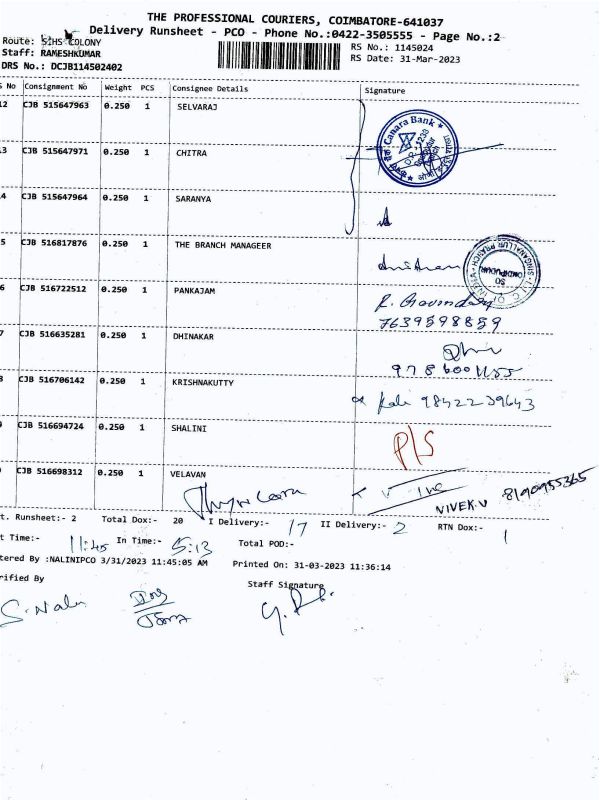 THE PROFESSIONAL COURIERS, COIMBATORE-641037
Delivery Runsheet - PCO - Phone No.:0422-3505555 - Page No.:2
Route: SIHS COLONY
Staff: RAMESHKUMAR
DRS No.: DCJB114502402
RS No.: 1145024
RS Date: 31-Mar-2023
S No Consignment No Weight PCS Consignee Details Signature
12 CJB 515647963 0.250 1 SELVARAJ
Canara Bank
3 CJB 515647971 0.250 1 CHITRA
4 CJB 515647964 0.250 1 SARANYA
5 CJB 516817876 0.250 1 THE BRANCH MANAGEER
6 CJB 516722512 0.250 1 PANKAJAM
7639598859
7 CJB 516635281 0.250 1 DHINAKAR
CJB 516706142 0.250 1 KRISHNAKUTTY
9842239643
CJB 516694724 0.250 1 SHALINI
P/S
CJB 516698312 0.250 1 VELAVAN
VIVEK.V 8190955365
t. Runsheet:- 2 Total Dox:- 20 I Delivery:- 17 II Delivery:- 2 RTN Dox:- 1
t Time:- 11:45 In Time:- 5:13 Total POD:-
tered By :NALINIPCO 3/31/2023 11:45:05 AM Printed On: 31-03-2023 11:36:14
rified By Staff Signature